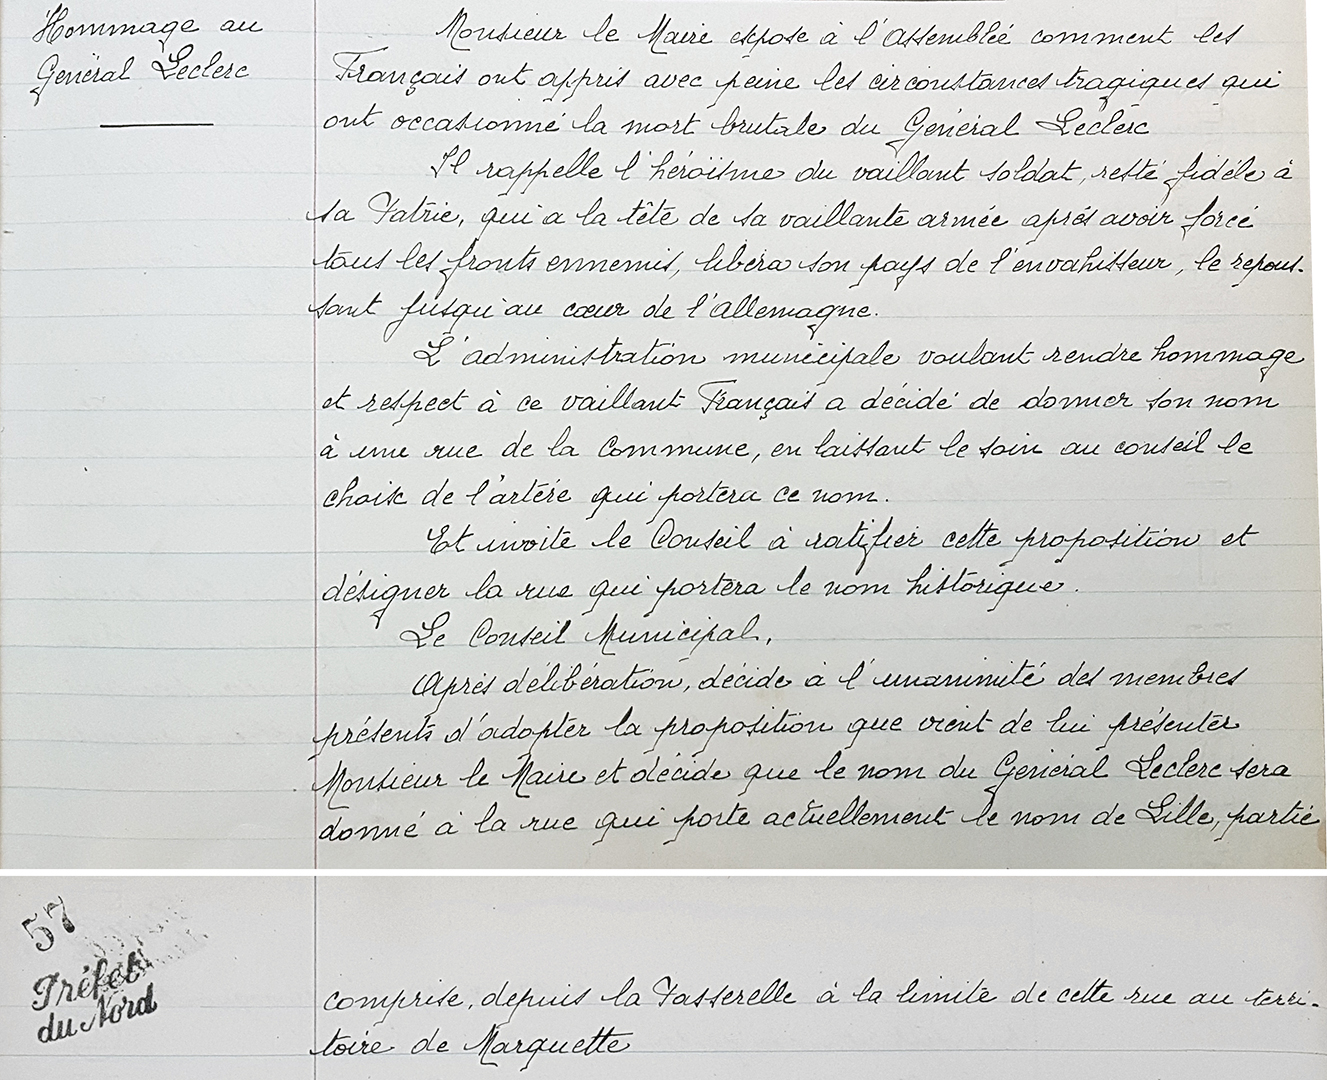 Hommage au
Général Leclerc
Monsieur le Maire expose à l'Assemblée comment les
Français ont appris avec peine les circonstances tragiques qui
ont occasionné la mort brutale du Général Leclerc
Il rappelle l'héroïsme du vaillant soldat, resté fidèle à
sa Patrie, qui a la tête de sa vaillante armée après avoir forcé
tous les fronts ennemis, libéra son pays de l'envahisseur, le repous-
sant jusqu'au cœur de l'Allemagne.
L'administration municipale voulant rendre hommage
et respect à ce vaillant Français a décidé de donner son nom
à une rue de la Commune, en laissant le soin au conseil le
choix de l'artère qui portera ce nom.
Et invite le Conseil à ratifier cette proposition et
désigner la rue qui portera le nom historique.
Le Conseil Municipal,
Après délibération, décide à l'unanimité des membres
présents d'adopter la proposition que vient de lui présenter
Monsieur le Maire et décide que le nom du Général Leclerc sera
donné à la rue qui porte actuellement le nom de Lille, partie
57
Préfet
du Nord
comprise, depuis la Passerelle à la limite de cette rue au terri-
toire de Marquette